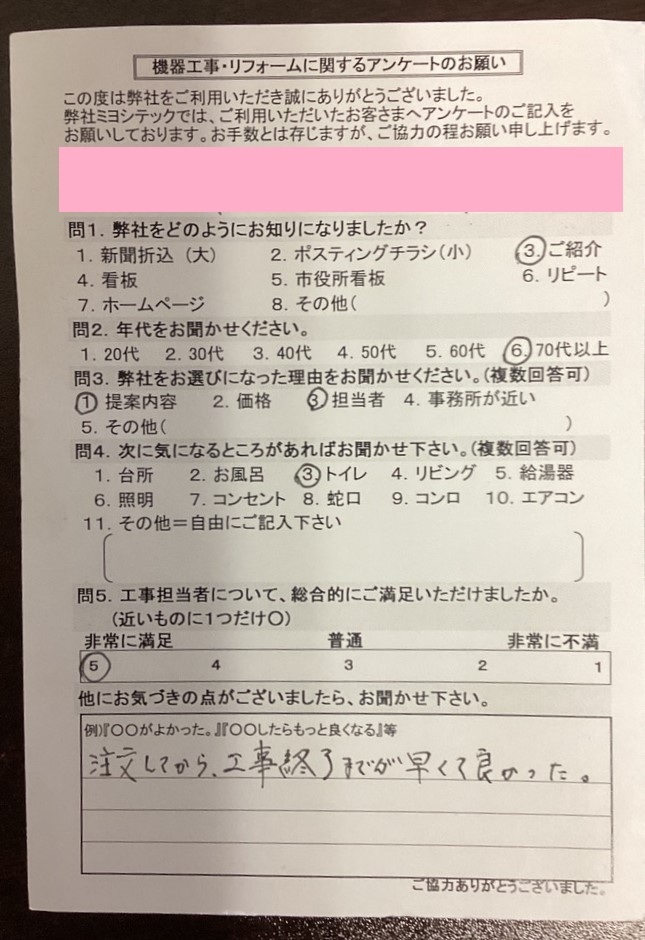 機器工事・リフォームに関するアンケートのお願い
この度は弊社をご利用いただき誠にありがとうございました。
弊社ミヨシテックでは、ご利用いただいたお客さまへアンケートのご記入を
お願いしております。お手数とは存じますが、ご協力の程お願い申し上げます。
問1. 弊社をどのようにお知りになりましたか?
1. 新聞折込(大) 2. ポスティングチラシ(小) 3. ご紹介
4. 看板 5. 市役所看板 6. リピート
7. ホームページ 8. その他( )
問2. 年代をお聞かせください。
1. 20代 2. 30代 3. 40代 4. 50代 5. 60代 6. 70代以上
問3. 弊社をお選びになった理由をお聞かせください。(複数回答可)
1 提案内容 2. 価格 3. 担当者 4. 事務所が近い
5. その他( )
問4. 次に気になるところがあればお聞かせ下さい。(複数回答可)
1. 台所 2. お風呂 3. トイレ 4. リビング 5. 給湯器
6. 照明 7. コンセント 8. 蛇口 9. コンロ 10. エアコン
11. その他=自由にご記入下さい
問5. 工事担当者について、総合的にご満足いただけましたか。
(近いものに1つだけ〇)
非常に満足 普通 非常に不満
5 4 3 2 1
他にお気づきの点がございましたら、お聞かせ下さい。
例)『〇〇がよかった。』『〇〇したらもっと良くなる』等
注文してから、工事終了までが早くて良かった。
ご協力ありがとうございました。